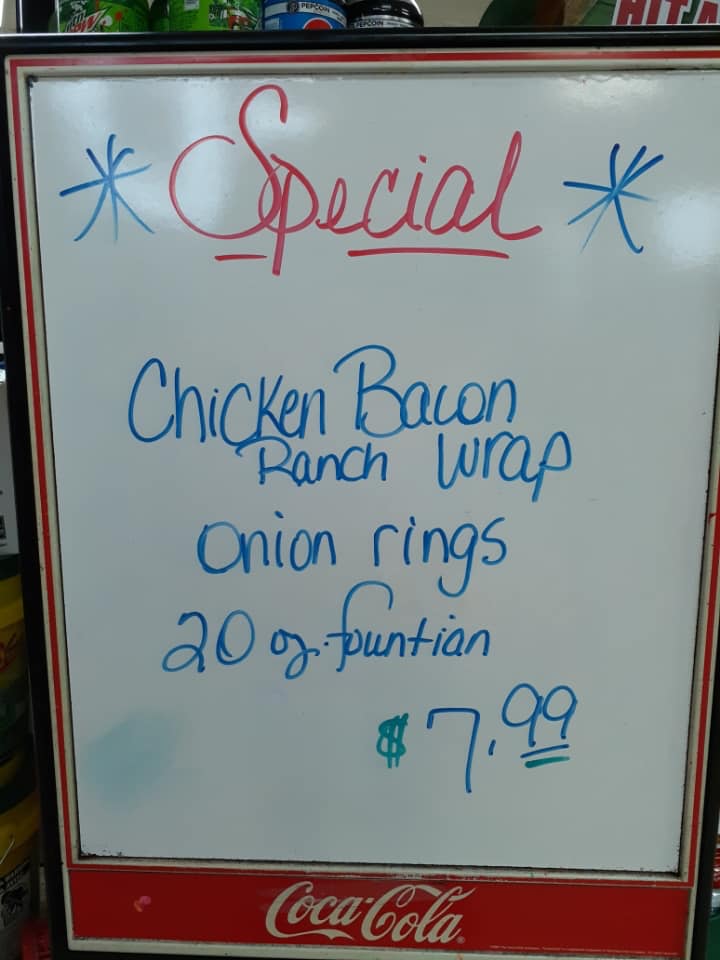 PEPCOIN
PEPCOIN
* Special *
Chicken Bacon
Ranch Wrap
onion rings
20 oz. fountian
$7.99
Coca-Cola